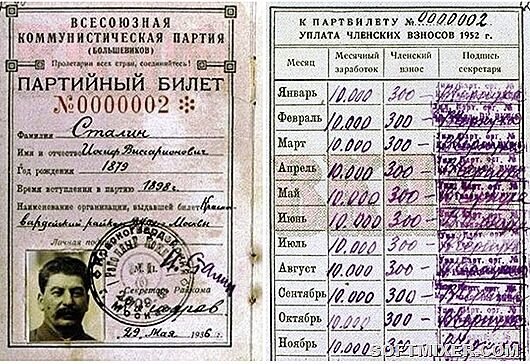 ВСЕСОЮЗНАЯ
КОММУНИСТИЧЕСКАЯ ПАРТИЯ
(БОЛЬШЕВИКОВ)
Пролетарии всех стран, соединяйтесь!
ПАРТИЙНЫЙ БИЛЕТ
№0000002
Фамилия Сталин
Имя и отчество Иосиф Виссарионович
Год рождения 1879
Время вступления в партию 1898 г.
Наименование организации, выдавшей билет Красно-
гвардейский райком Москвы
Личная
Секретарь Райкома
29 Мая 1936 г.
К ПАРТБИЛЕТУ № 0000002
УПЛАТА ЧЛЕНСКИХ ВЗНОСОВ 1952 г.
Месяц Месячный заработок Членский взнос Подпись секретаря
Январь 10.000 300-
Февраль 10.000 300-
Март 10.000 300-
Апрель 10.000 300-
Май 10.000 300-
Июнь 10.000 300-
Июль 10.000 300-
Август 10.000 300-
Сентябрь 10.000 300-
Октябрь 10.000 300-
Ноябрь 10.000 300-
softmixer.com